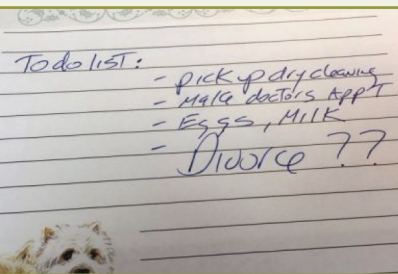 Todo list:
- pick up dry cleaning
- Make doctors App'T
- Eggs, Milk
- Divorce ??